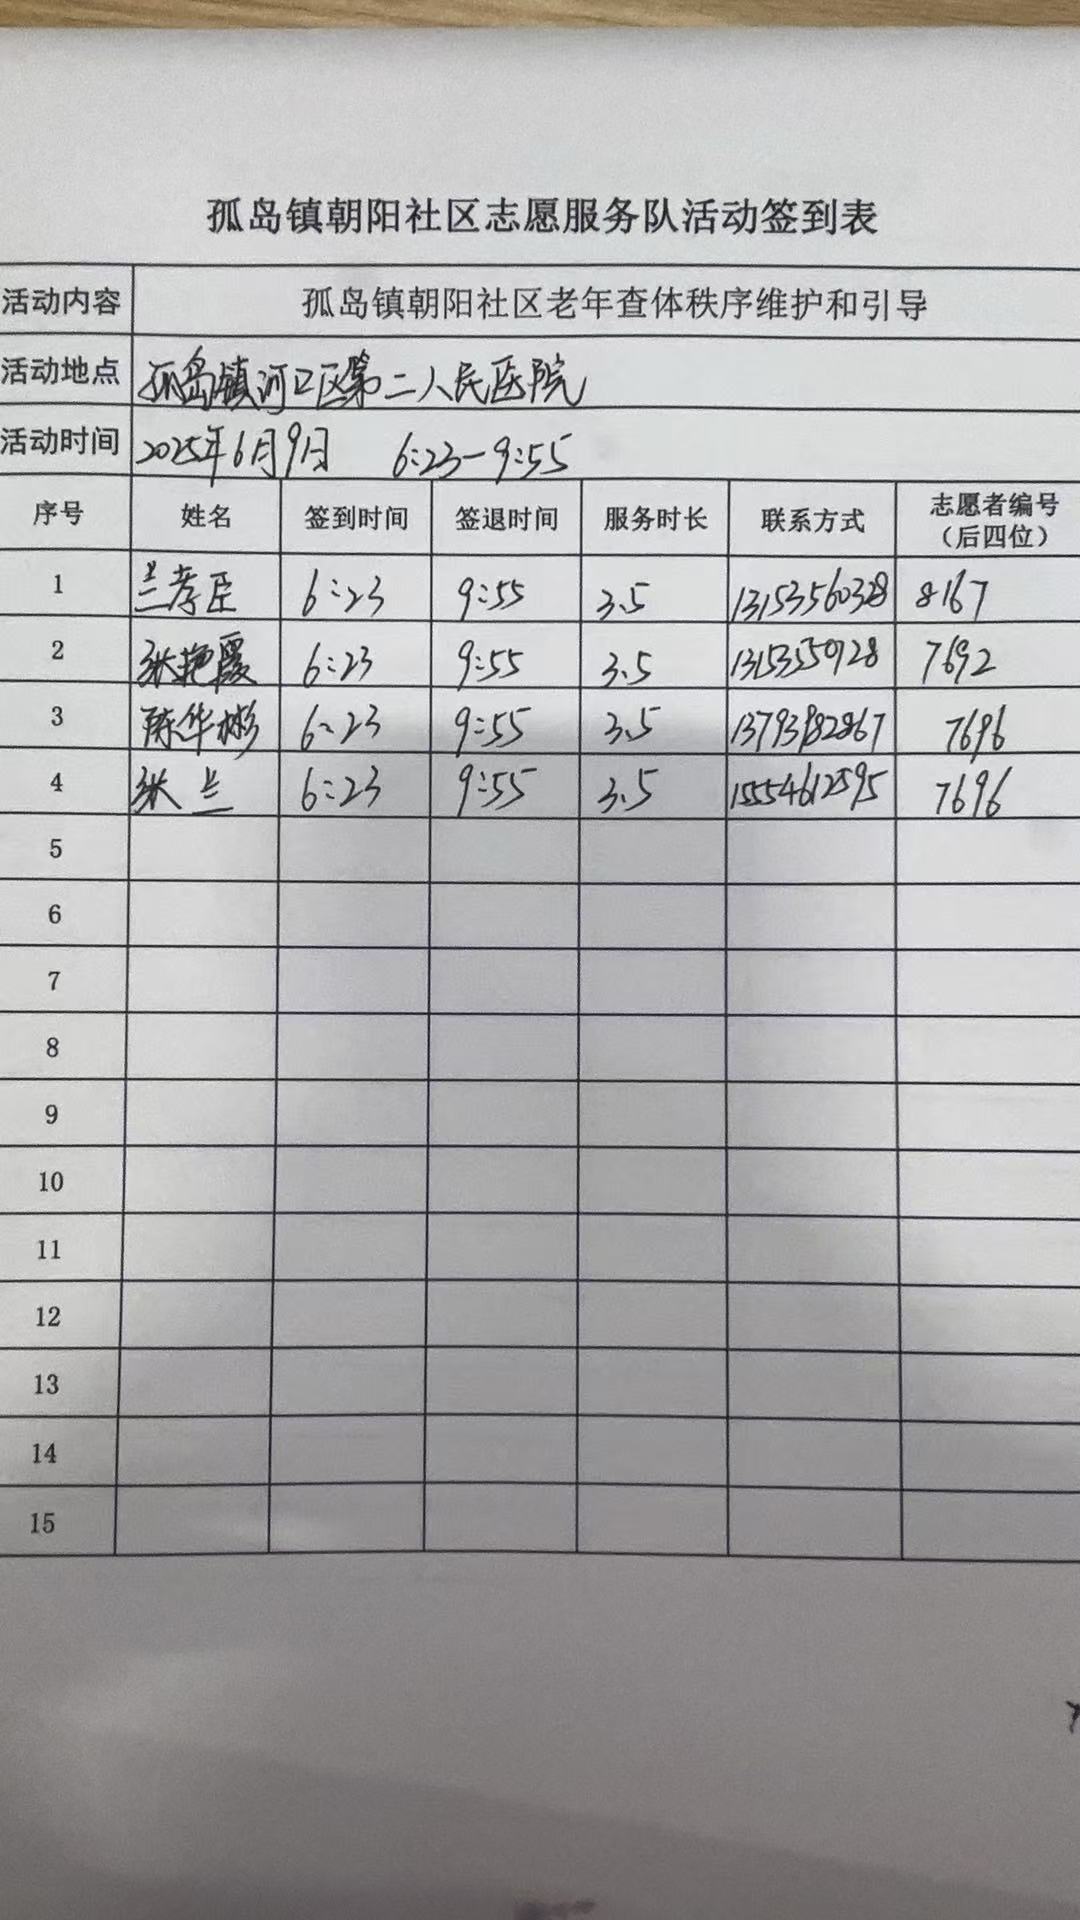 孤岛镇朝阳社区志愿服务队活动签到表
活动内容 孤岛镇朝阳社区老年查体秩序维护和引导
活动地点 孤岛镇河口区第二人民医院
活动时间 2025年6月9日 6:23-9:55
序号 姓名 签到时间 签退时间 服务时长 联系方式 志愿者编号（后四位）
1 兰孝臣 6:23 9:55 3.5 13153560328 8167
2 张艳霞 6:23 9:55 3.5 7692
3 陈华彬 6:23 9:55 3.5 13793982867 7696
4 张兰 6:23 9:55 3.5 15554612595 7696
5
6
7
8
9
10
11
12
13
14
15